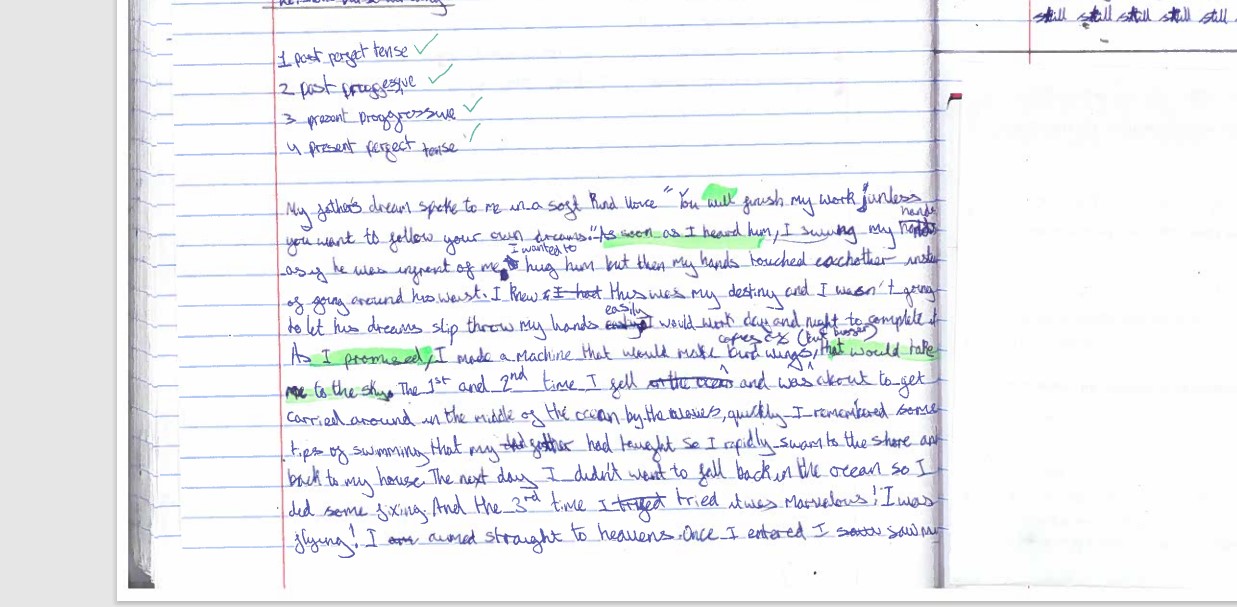 still still still still still
1 past perfect tense
2 past proggesive
3 present proggressive
4 present perfect tense
My father's dream spoke to me in a soft kind voice "You will finish my work unless
hands
you want to follow your own dreams." As soon as I heard him, I swung my
I wanted to
as if he was infront of me, hug him but then my hands touched eachother inste
of going around his waist. I knew I had this was my destiny and I wasn't going
easily
to let his dreams slip throw my hands I would work day and night to complete it
copies of (but bigger)
As I promised, I made a machine that would make bird wings, that would take
me to the sky. The 1st and 2nd time I fell in the ocean and was about to get
carried around in the middle of the ocean by the waves, quickly I remembered some
tips of swimming that my father had taught so I rapidly swam to the shore an
back to my house. The next day I didn't want to fall back in the ocean so I
did some fixing. And the 3rd time I tryed tried it was Marvelous! I was
flying! I am aimed straight to heavens. Once I entered I saw saw my